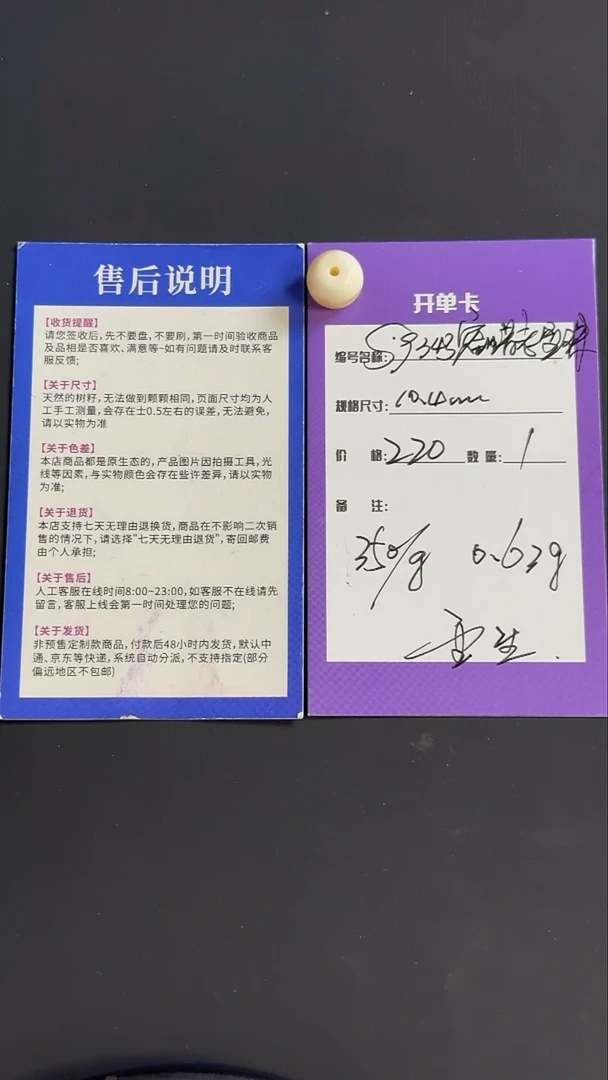 售后说明
【收货提醒】
请您签收后,先不要盘,不要刷,第一时间验收商品
及品相是否喜欢、满意等~如有问题请及时联系客
服反馈;
【关于尺寸】
天然的树籽,无法做到颗颗相同,页面尺寸均为人
工手工测量,会存在士0.5左右的误差,无法避免,
请以实物为准
【关于色差】
本店商品都是原生态的,产品图片因拍摄工具,光
线等因素,与实物颜色会存在些许差异,请以实物
为准;
【关于退货】
本店支持七天无理由退换货,商品在不影响二次销
售的情况下,请选择"七天无理由退货",寄回邮费
由个人承担;
【关于售后】
人工客服在线时间8:00~23:00,如客服不在线请先
留言,客服上线会第一时间处理您的问题;
【关于发货】
非预售定制款商品,付款后48小时内发货,默认中
通、京东等快递,系统自动分派,不支持指定(部分
偏远地区不包邮)
开单卡
编号名称:
规格尺寸: 10.4mm
价 格: 220 数量: 1
备 注:
350/g 0.63g